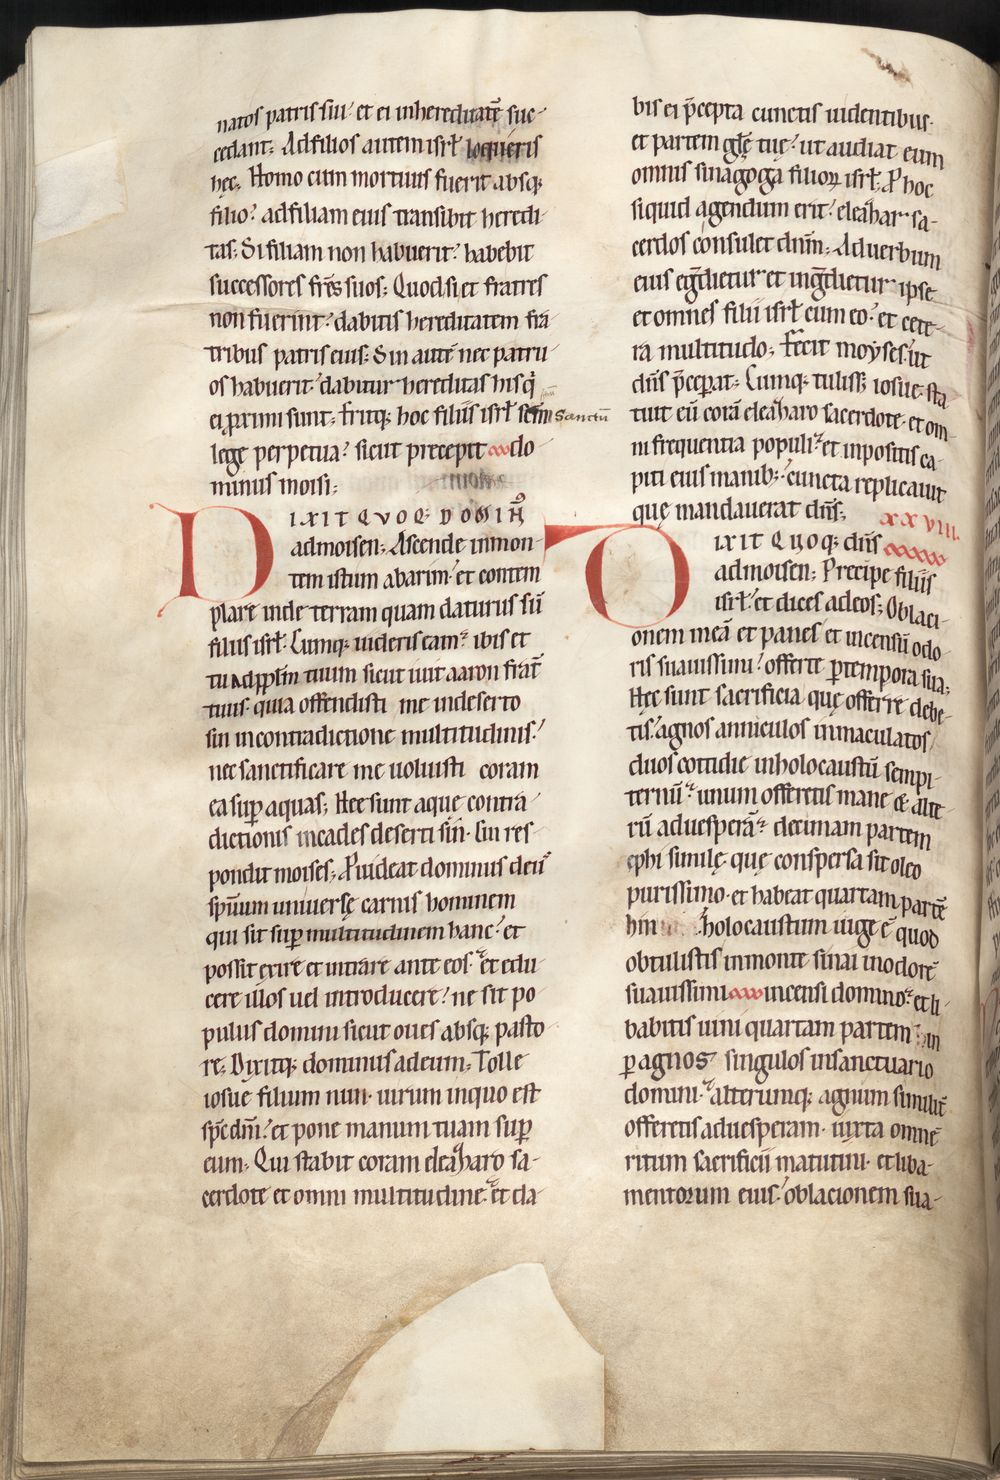 natos patris sui· et ei inhereditatē suc-
cedant; Adfilios autem isrł loqueris
hęc; Homo cum mortuus fuerit absq;
filio? adfiliam eius transibit heredi-
tas; Si filiam non habuerit? habebit
successores fr̄es suos; Quodsi et fratres
non fuerint? dabitis hereditatem fra
tribus patris eius; Sin autē nec patru
os habuerit? dabitur hereditas hisq̇
ei ꝓximi sunt; Eritq; hoc filiis isrł scm̄ Sanctū
lege perpetua? sicut precepit do-
minus moisi;
DIXIT QVOQ; DOMINꝰ
admoisen; Ascende inmon-
tem istum abarim? et contem
plare inde terram quam daturus sū
filiis isrł. Cumq; uideris eam? ibis et
tu adpplm̄ tuum sicut iuit aaron frat̄
tuus· quia offendisti me indeserto
sin incontradictione multitudinis?
nec sanctificare me uoluisti coram
ea sup̄ aquas; Hec sunt aque contra-
dictionis incades deserti sin· Cui res-
pondit moises; Puideat dominus deūs
sp̄uum uniuersę carnis hominem
qui sit sup̄ multitudinem hanc? et
possit exire et intrare ante eos? et edu
cere illos uel introducere? ne sit po
pulus domini sicut oues absq; pasto
re; Dixitq; dominus adeum; Tolle
iosue filium nun· uirum inquo est
sp̄c dm̄i? et pone manum tuam sup̄
eum; Qui stabit coram eleaharo sa-
cerdote et omni multitudine? et da-
bis ei p̄cepta cunctis uidentibus·
et partem glę̄ tuę? ut audiat eum
omnis sinagoga filioꝝ isrł; P hoc
siquid agendum erit? eleahar sa-
cerdos consulet dnm̄; Aduerbum
eius eg̃dietur et ing̃dietur ipse
et omnes filii isrł cum eo? et cete-
ra multitudo; Fecit moyses? ut
dn̄s p̄cepat; Cumq; tuliss; iosue· sta
tuit eū corā eleaharo sacerdote· et om-
ni frequentia populi? et inpositis ca-
piti eius manib;? cuncta replicauit
quę mandauerat dn̄s; xxviii.
DIXIT QUOQ; dn̄s
admoisen; Precipe filiis
isrł? et dices adeos; Oblaci-
onem meā et panes et incensū odo-
ris suauissimi? offerte ꝑtempora sua;
Hęc sunt sacrificia quę offerre debe-
tis? agnos anniculos inmaculatos
duos cottidie inholocaustū sempi-
ternū? unum offeretis mane & alte-
rū aduesperā? decimam partem
ephi similę· quę conspersa sit oleo
purissimo· et habeat quartam partē
hin holocaustum iuge ē quod
obtulistis inmonte sinai inodorē
suauissimi incensi domino? et li-
babitis uini quartam partem hin
ꝑ agnos singulos insanctuario
domini? alterumq; agnum similit̄
offeretis aduesperam· iuxta omnē
ritum sacrificii matutini· et liba-
mentorum eius? oblacionem sua-